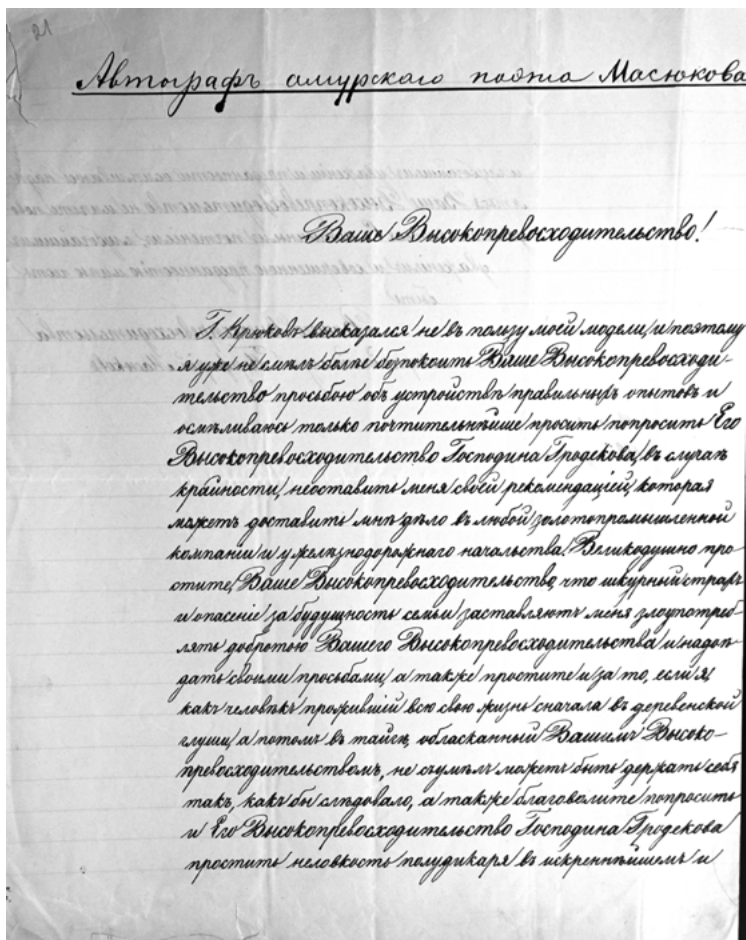 21
Автографъ амурскаго поэта Масюкова
Ваше Высокопревосходительство!
Г. Крюковъ высказался не въ пользу моей модели, и поэтому
я уже не смѣлъ болѣе безпокоить Ваше Высокопревосходи-
тельство просьбою объ устройствѣ правильныхъ опытовъ и
осмѣливаюсь только почтительнѣйше просить попросить Его
Высокопревосходительство Господина Гродекова, въ случаѣ
крайности, неоставить меня своей рекомендаціей, которая
можетъ доставить мнѣ дѣло въ любой золотопромышленной
компаніи и у желѣзнодорожнаго начальства. Великодушно про-
стите, Ваше Высокопревосходительство, что шкурный страхъ
и опасеніе за будущность семьи заставляютъ меня злоупотреб-
лять добротою Вашего Высокопревосходительства и надоѣ-
дать своими просьбами, а также простите и за то, если я,
какъ человѣкъ прожившій всю свою жизнь сначала въ деревенской
глуши, а потомъ въ тайгѣ, обласканный Вашимъ Высоко-
превосходительствомъ, не съумѣлъ можетъ быть держать себя
такъ, какъ бы слѣдовало, а также благоволите попросить
и Его Высокопревосходительство Господина Гродекова
простить неловкость полудикаря въ искреннѣйшемъ и